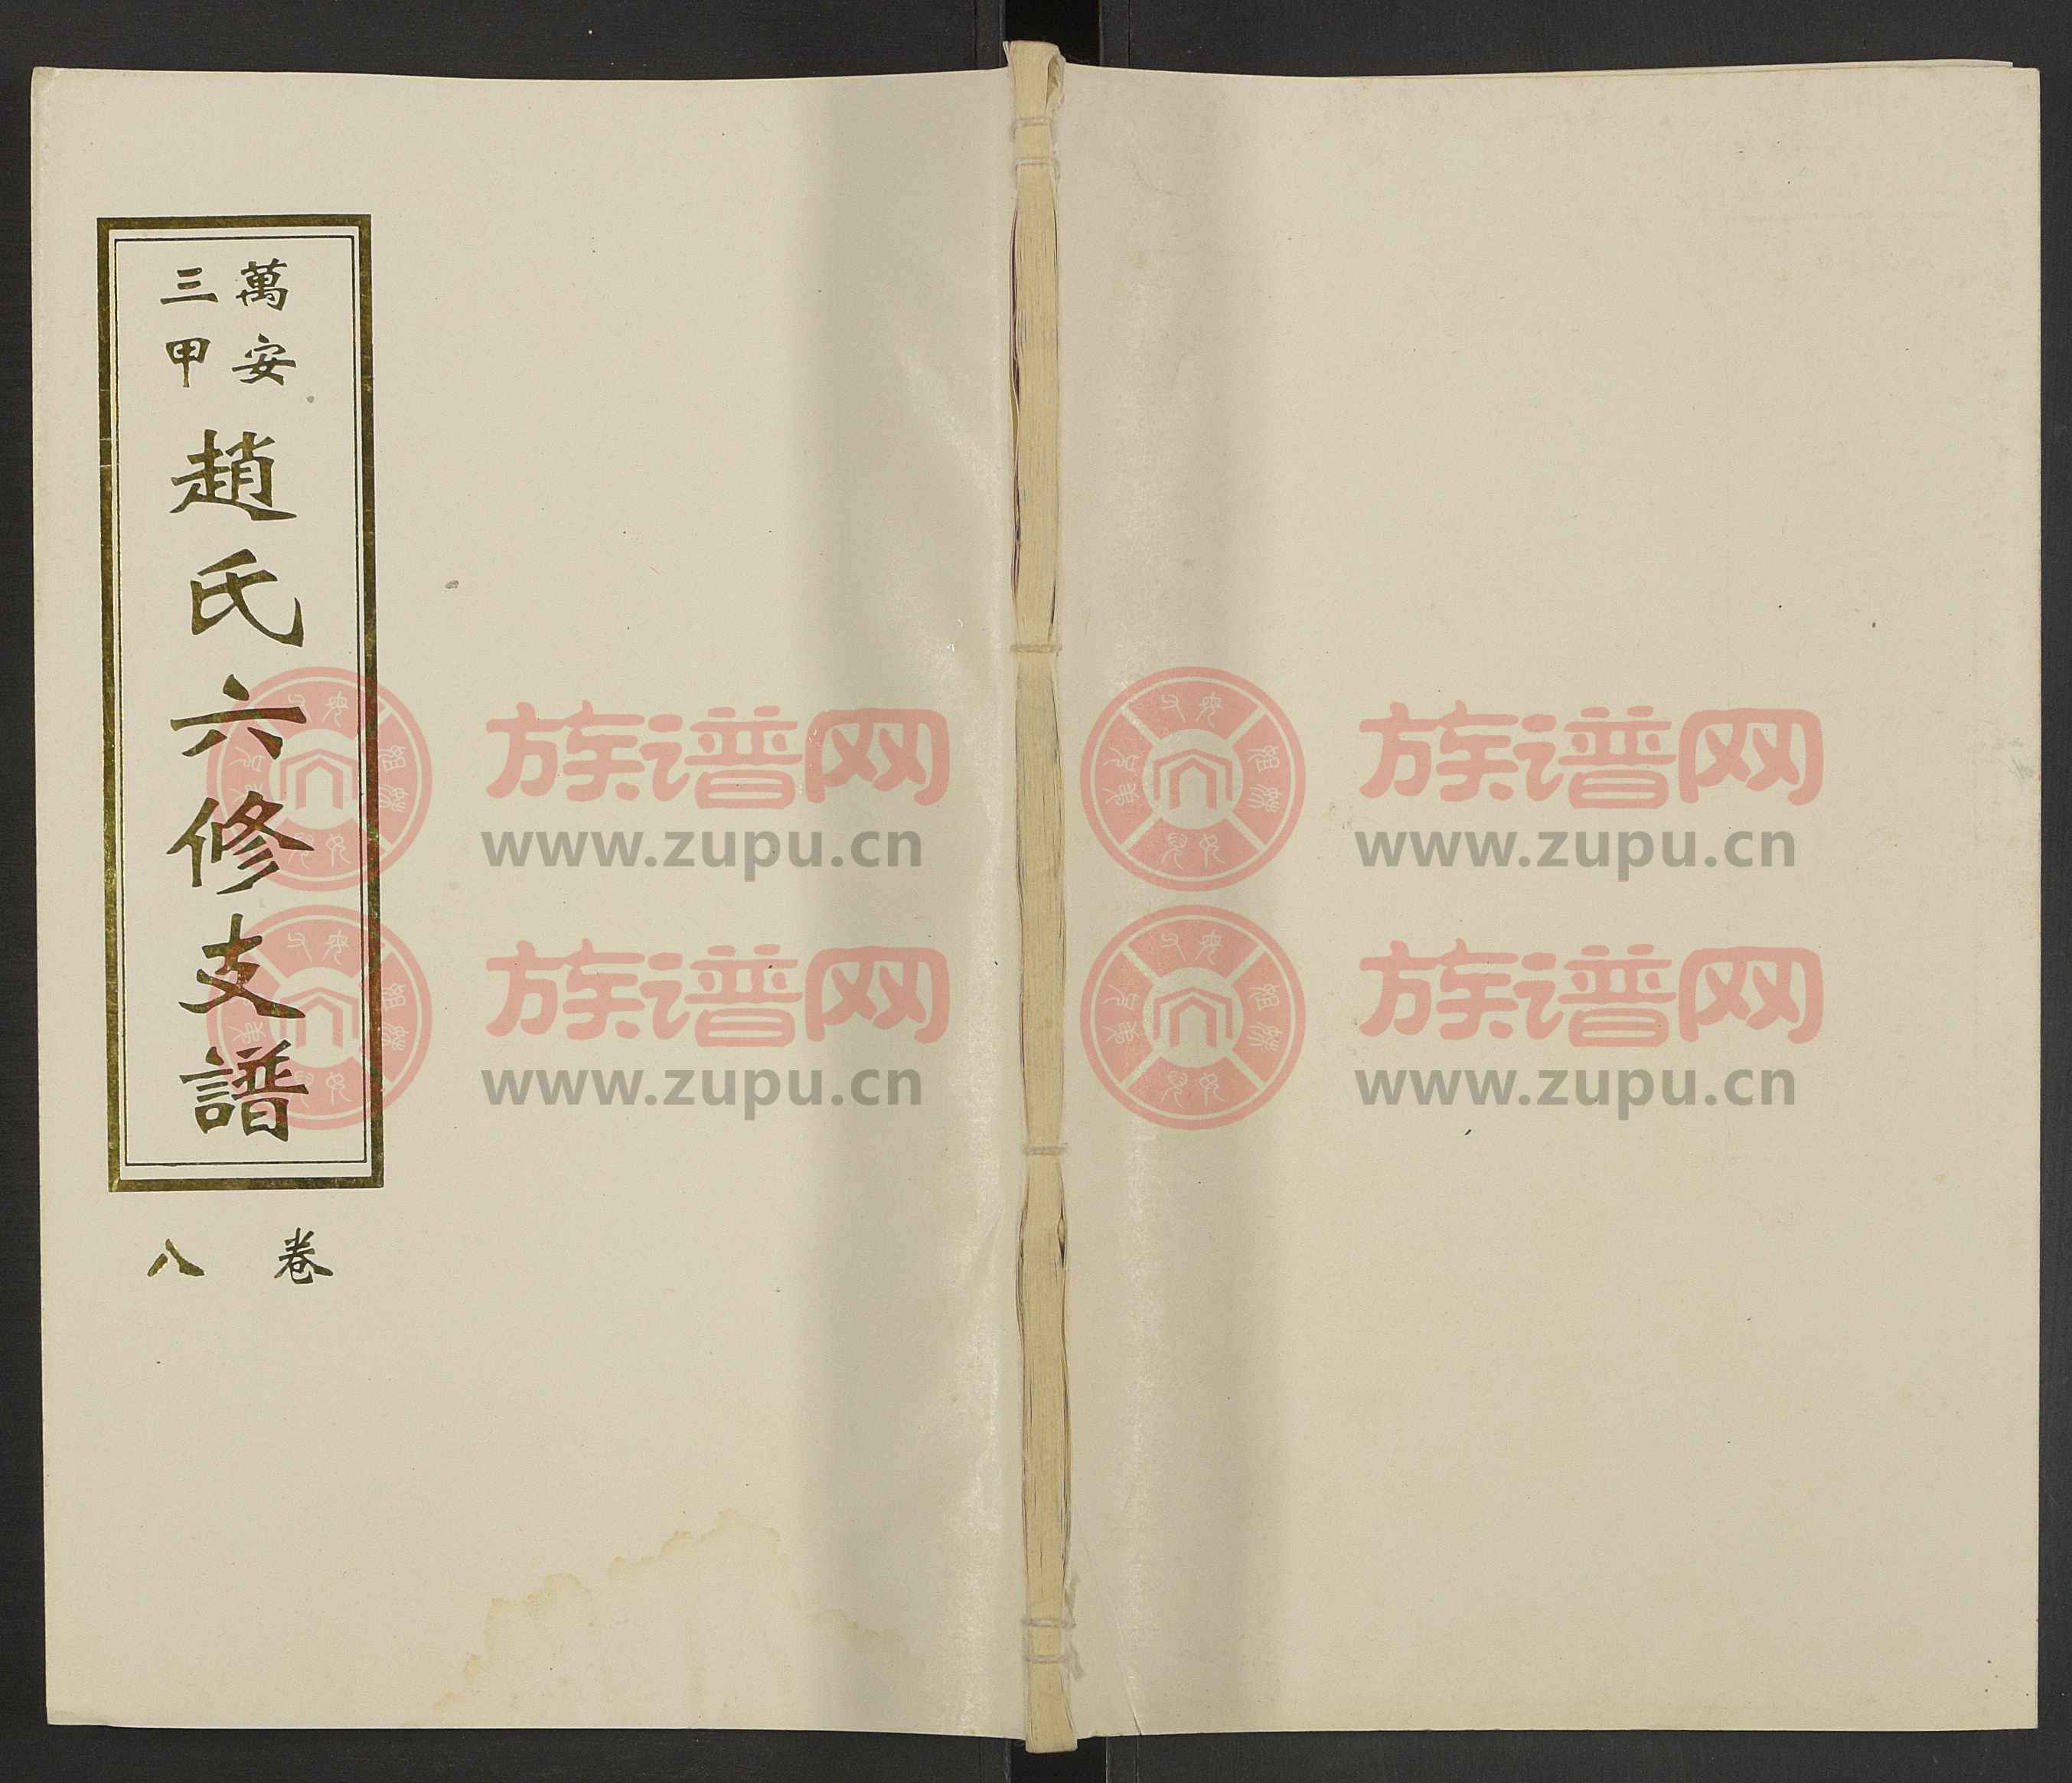 萬安
三甲
趙氏六修支譜
卷八
族谱网
www.zupu.cn
族谱网
www.zupu.cn
族谱网
www.zupu.cn
族谱网
www.zupu.cn